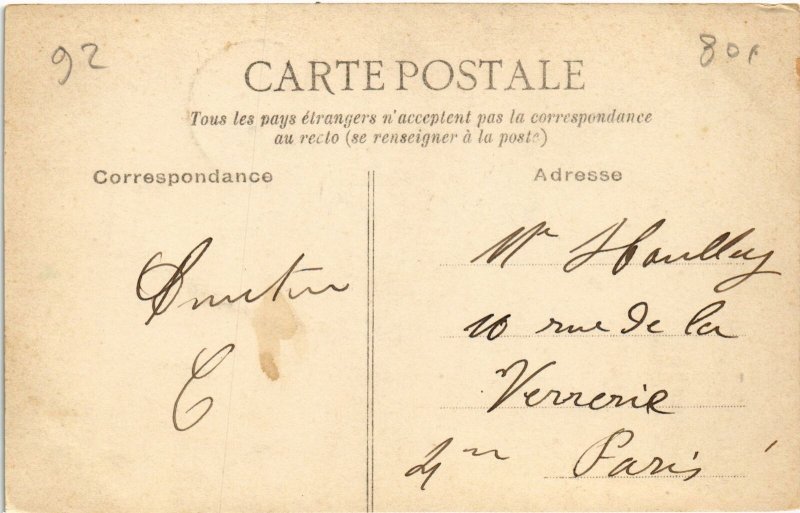 92
80f
CARTE POSTALE
Tous les pays étrangers n'acceptent pas la correspondance
au recto (se renseigner à la poste)
Correspondance
Adresse
C
Mr
10 rue de la
Verrerie
4me Paris